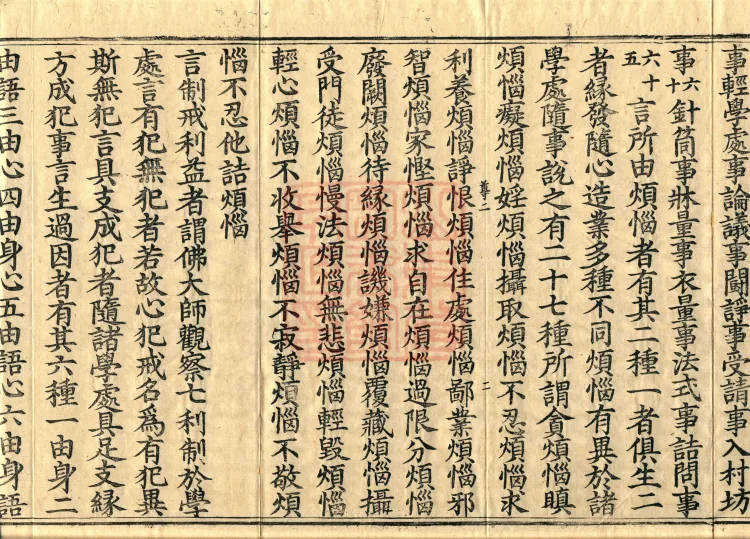 事輕學處事論議事鬪諍事受請事入村坊
事六十針筒事牀量事衣量事法式事詰問事
六十五言所由煩惱者有其二種一者俱生二
者緣發隨心造業多種不同煩惱有異於諸
學處隨事說之有二十七種所謂貪煩惱瞋
煩惱癡煩惱婬煩惱攝取煩惱不忍煩惱求
利養煩惱諍恨煩惱住處煩惱鄙業煩惱邪
智煩惱家慳煩惱求自在煩惱過限分煩惱
廢闕煩惱待緣煩惱譏嫌煩惱覆藏煩惱攝
受門徒煩惱慢法煩惱無悲煩惱輕毀煩惱
輕心煩惱不收舉煩惱不寂靜煩惱不敬煩
惱不忍他詰煩惱
言制戒利益者謂佛大師觀察七利制於學
處言有犯無犯者若故心犯戒名爲有犯異
斯無犯言具支成犯者隨諸學處具足支緣
方成犯事言生過因者有其六種一由身二
由語三由心四由身心五由語心六由身語